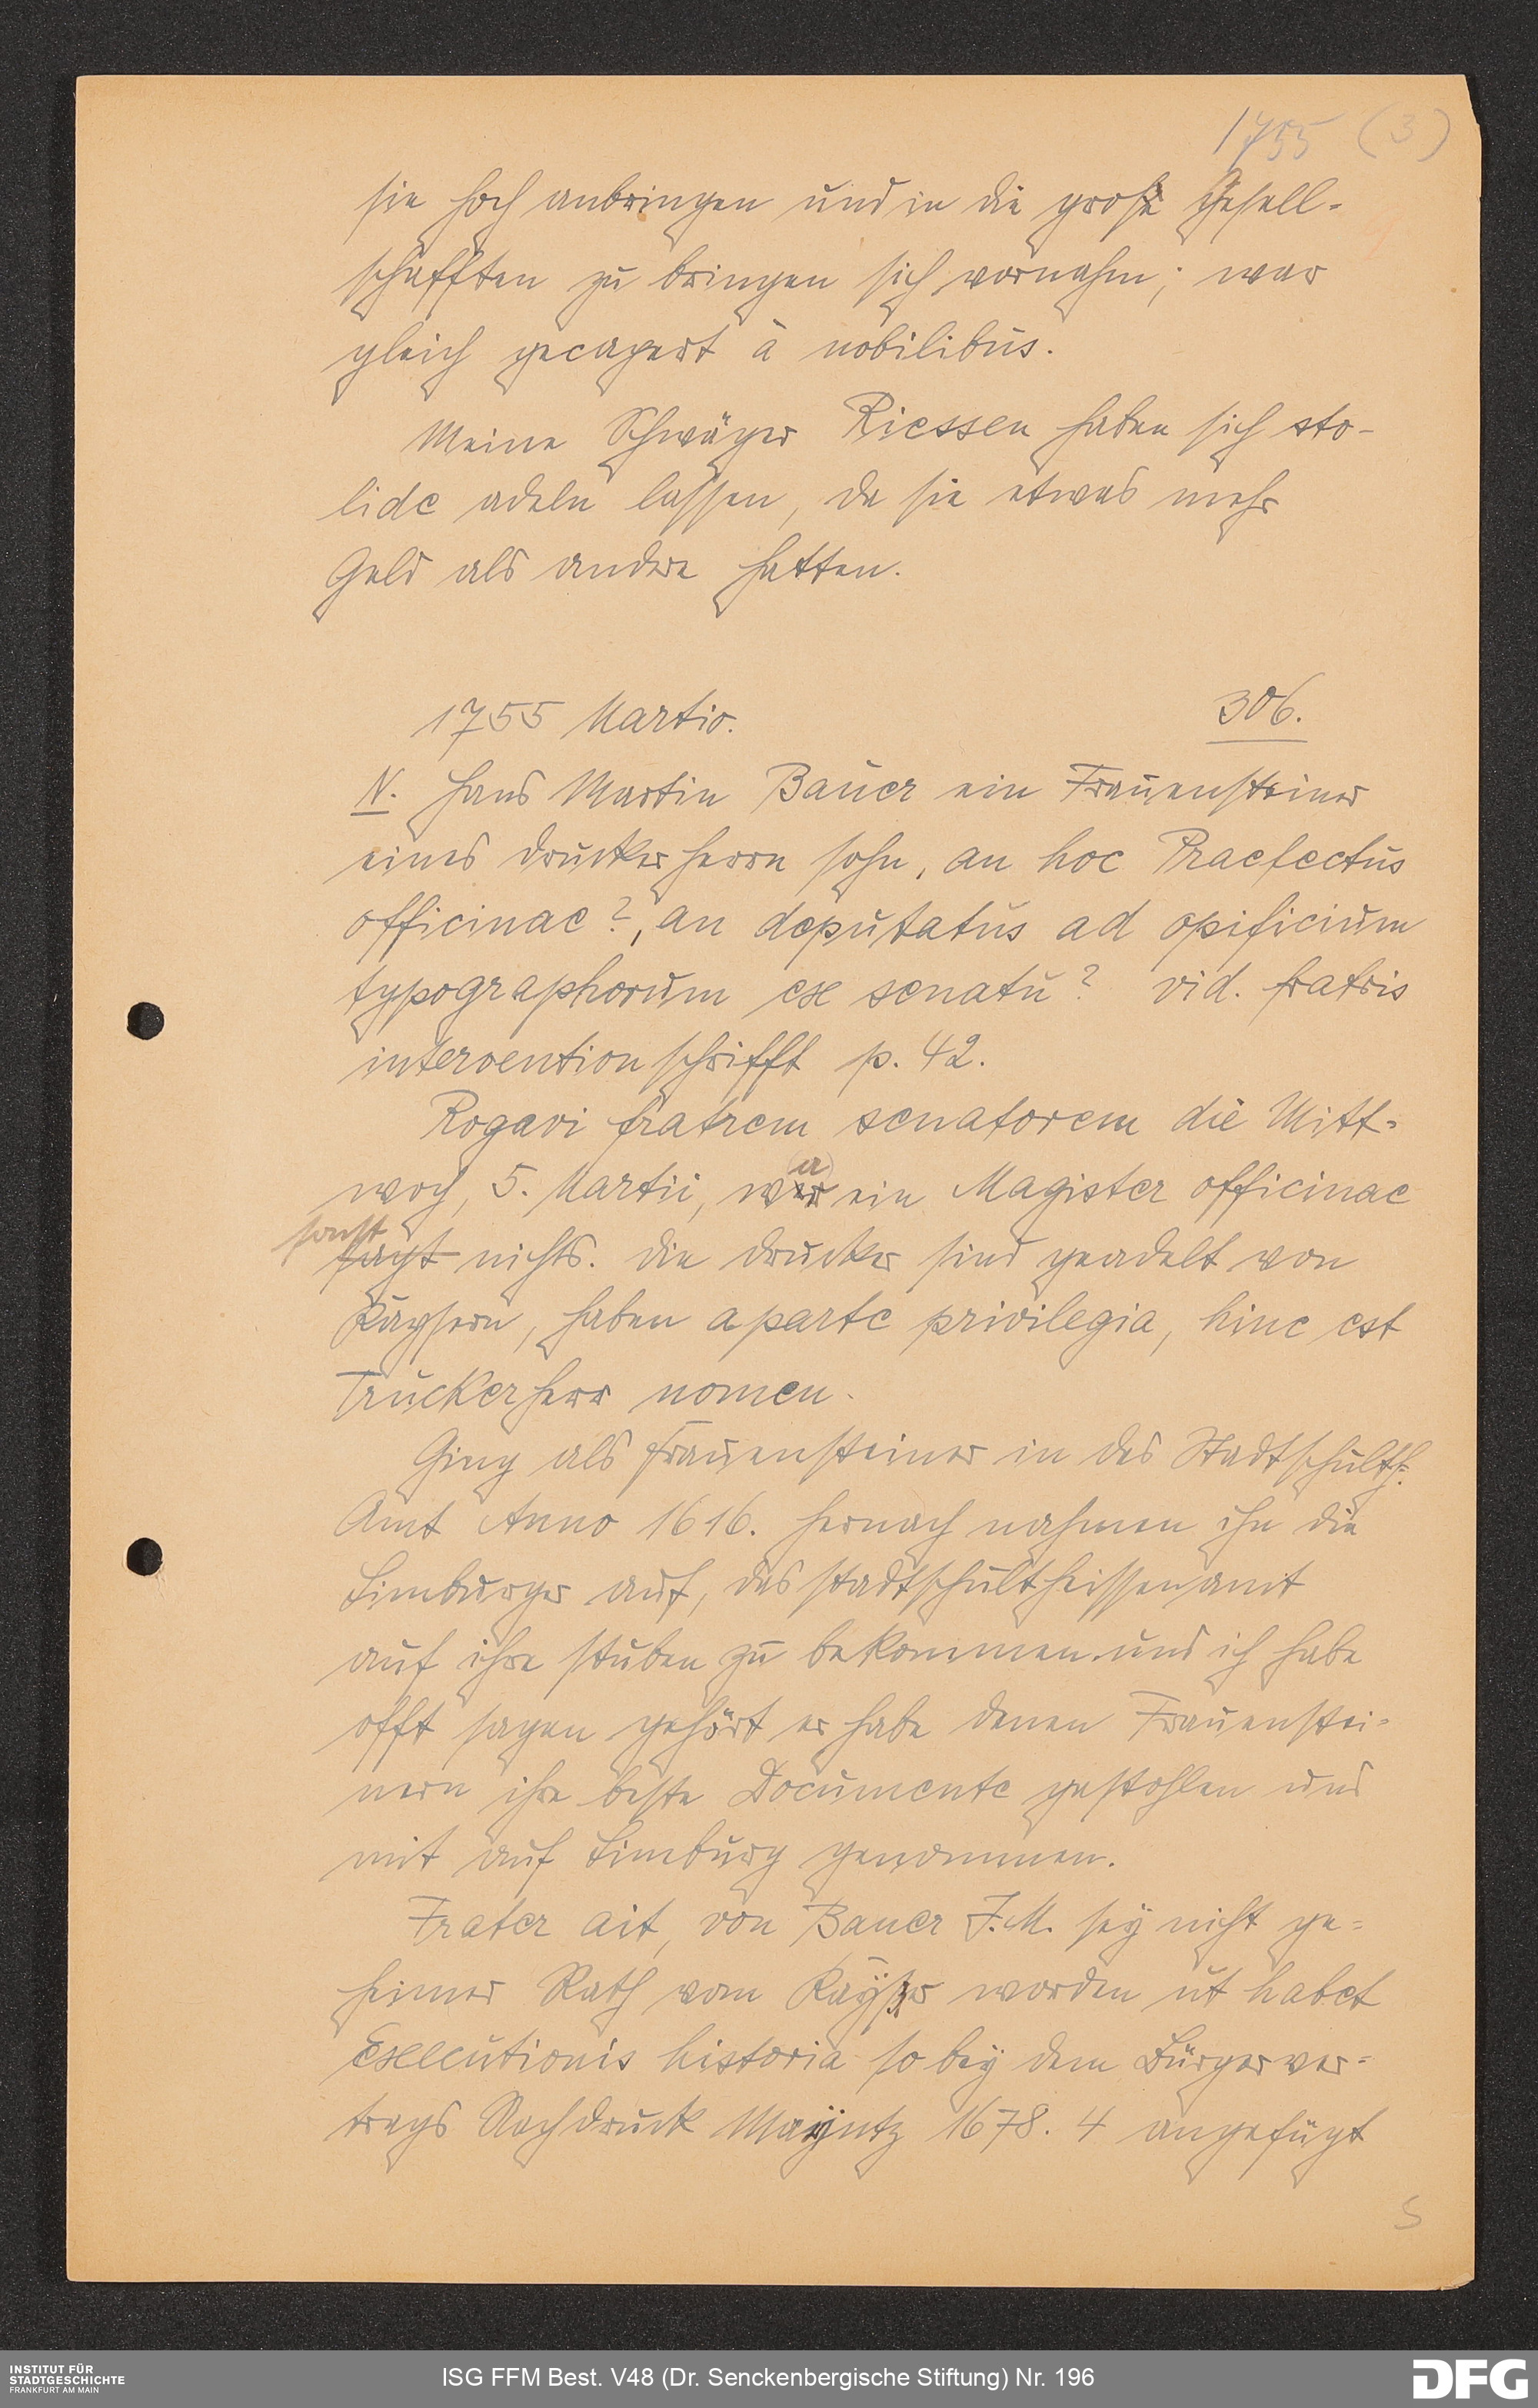 1755 (3)
sie hoch anbringen und in die große Gesell-
schafften zu bringen sich vornahm; war
gleich gecapert à nobilibus.
Meine Schwäger Riessen haben sich sto-
lide adeln lassen, da sie etwas mehr
Geld als andere hatten.
1755 Martio. 306.
N. Hans Martin Bauer ein Frauensteiner
eines Druckerherrn sohn, an hoc Praefectus
officinae?, an deputatus ad opificium
typographorum ex senatu? vid. fratris
interventionschrifft p. 42.
Rogavi fratrem senatorem die Mitt-
woch, 5. Martii, war ein Magister officinae
sonst nichts. Die Drucker sind geadelt von
Kaysern, haben aparte privilegia, hinc est
Truckerherr nomen.
Ging als Frauensteiner in das Stadtschulth.
Amt Anno 1616. hernach nahmen ihn die
Limburger auf, das stadtschultheissenamt
auf ihre stuben zu bekommen und ich habe
offt sagen gehört er habe denen Frauenstei-
nern ihre beste Documente gestohlen und
mit auf Limburg genommen.
Frater ait, von Bauer J. M. sey nicht ge-
heimer Rath vom Kayser worden ut habet
Executionis historia so bey dem Bürgerver-
trags Nachdruck Mayntz 1678. 4 angefügt
5
INSTITUT FÜR
STADTGESCHICHTE
FRANKFURT AM MAIN
ISG FFM Best. V48 (Dr. Senckenbergische Stiftung) Nr. 196
DFG